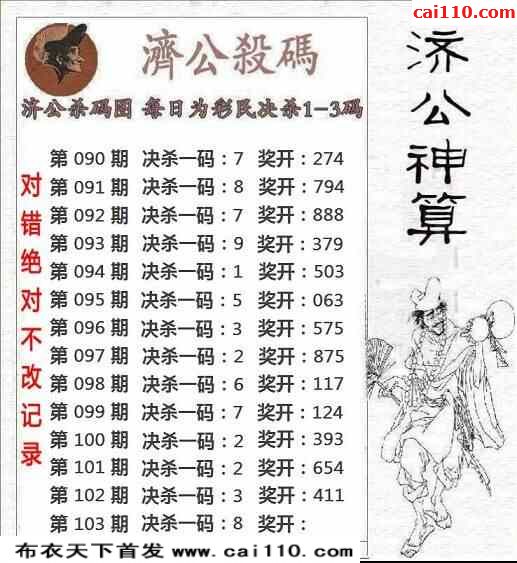 cai110.com
濟公殺碼
济公杀码图 每日为彩民决杀1-3码
济公神算
对错绝对不改记录
第 090 期 决杀一码：7 奖开：274
第 091 期 决杀一码：8 奖开：794
第 092 期 决杀一码：7 奖开：888
第 093 期 决杀一码：9 奖开：379
第 094 期 决杀一码：1 奖开：503
第 095 期 决杀一码：5 奖开：063
第 096 期 决杀一码：3 奖开：575
第 097 期 决杀一码：2 奖开：875
第 098 期 决杀一码：6 奖开：117
第 099 期 决杀一码：7 奖开：124
第 100 期 决杀一码：2 奖开：393
第 101 期 决杀一码：2 奖开：654
第 102 期 决杀一码：3 奖开：411
第 103 期 决杀一码：8 奖开：
布衣天下首发 www.cai110.com